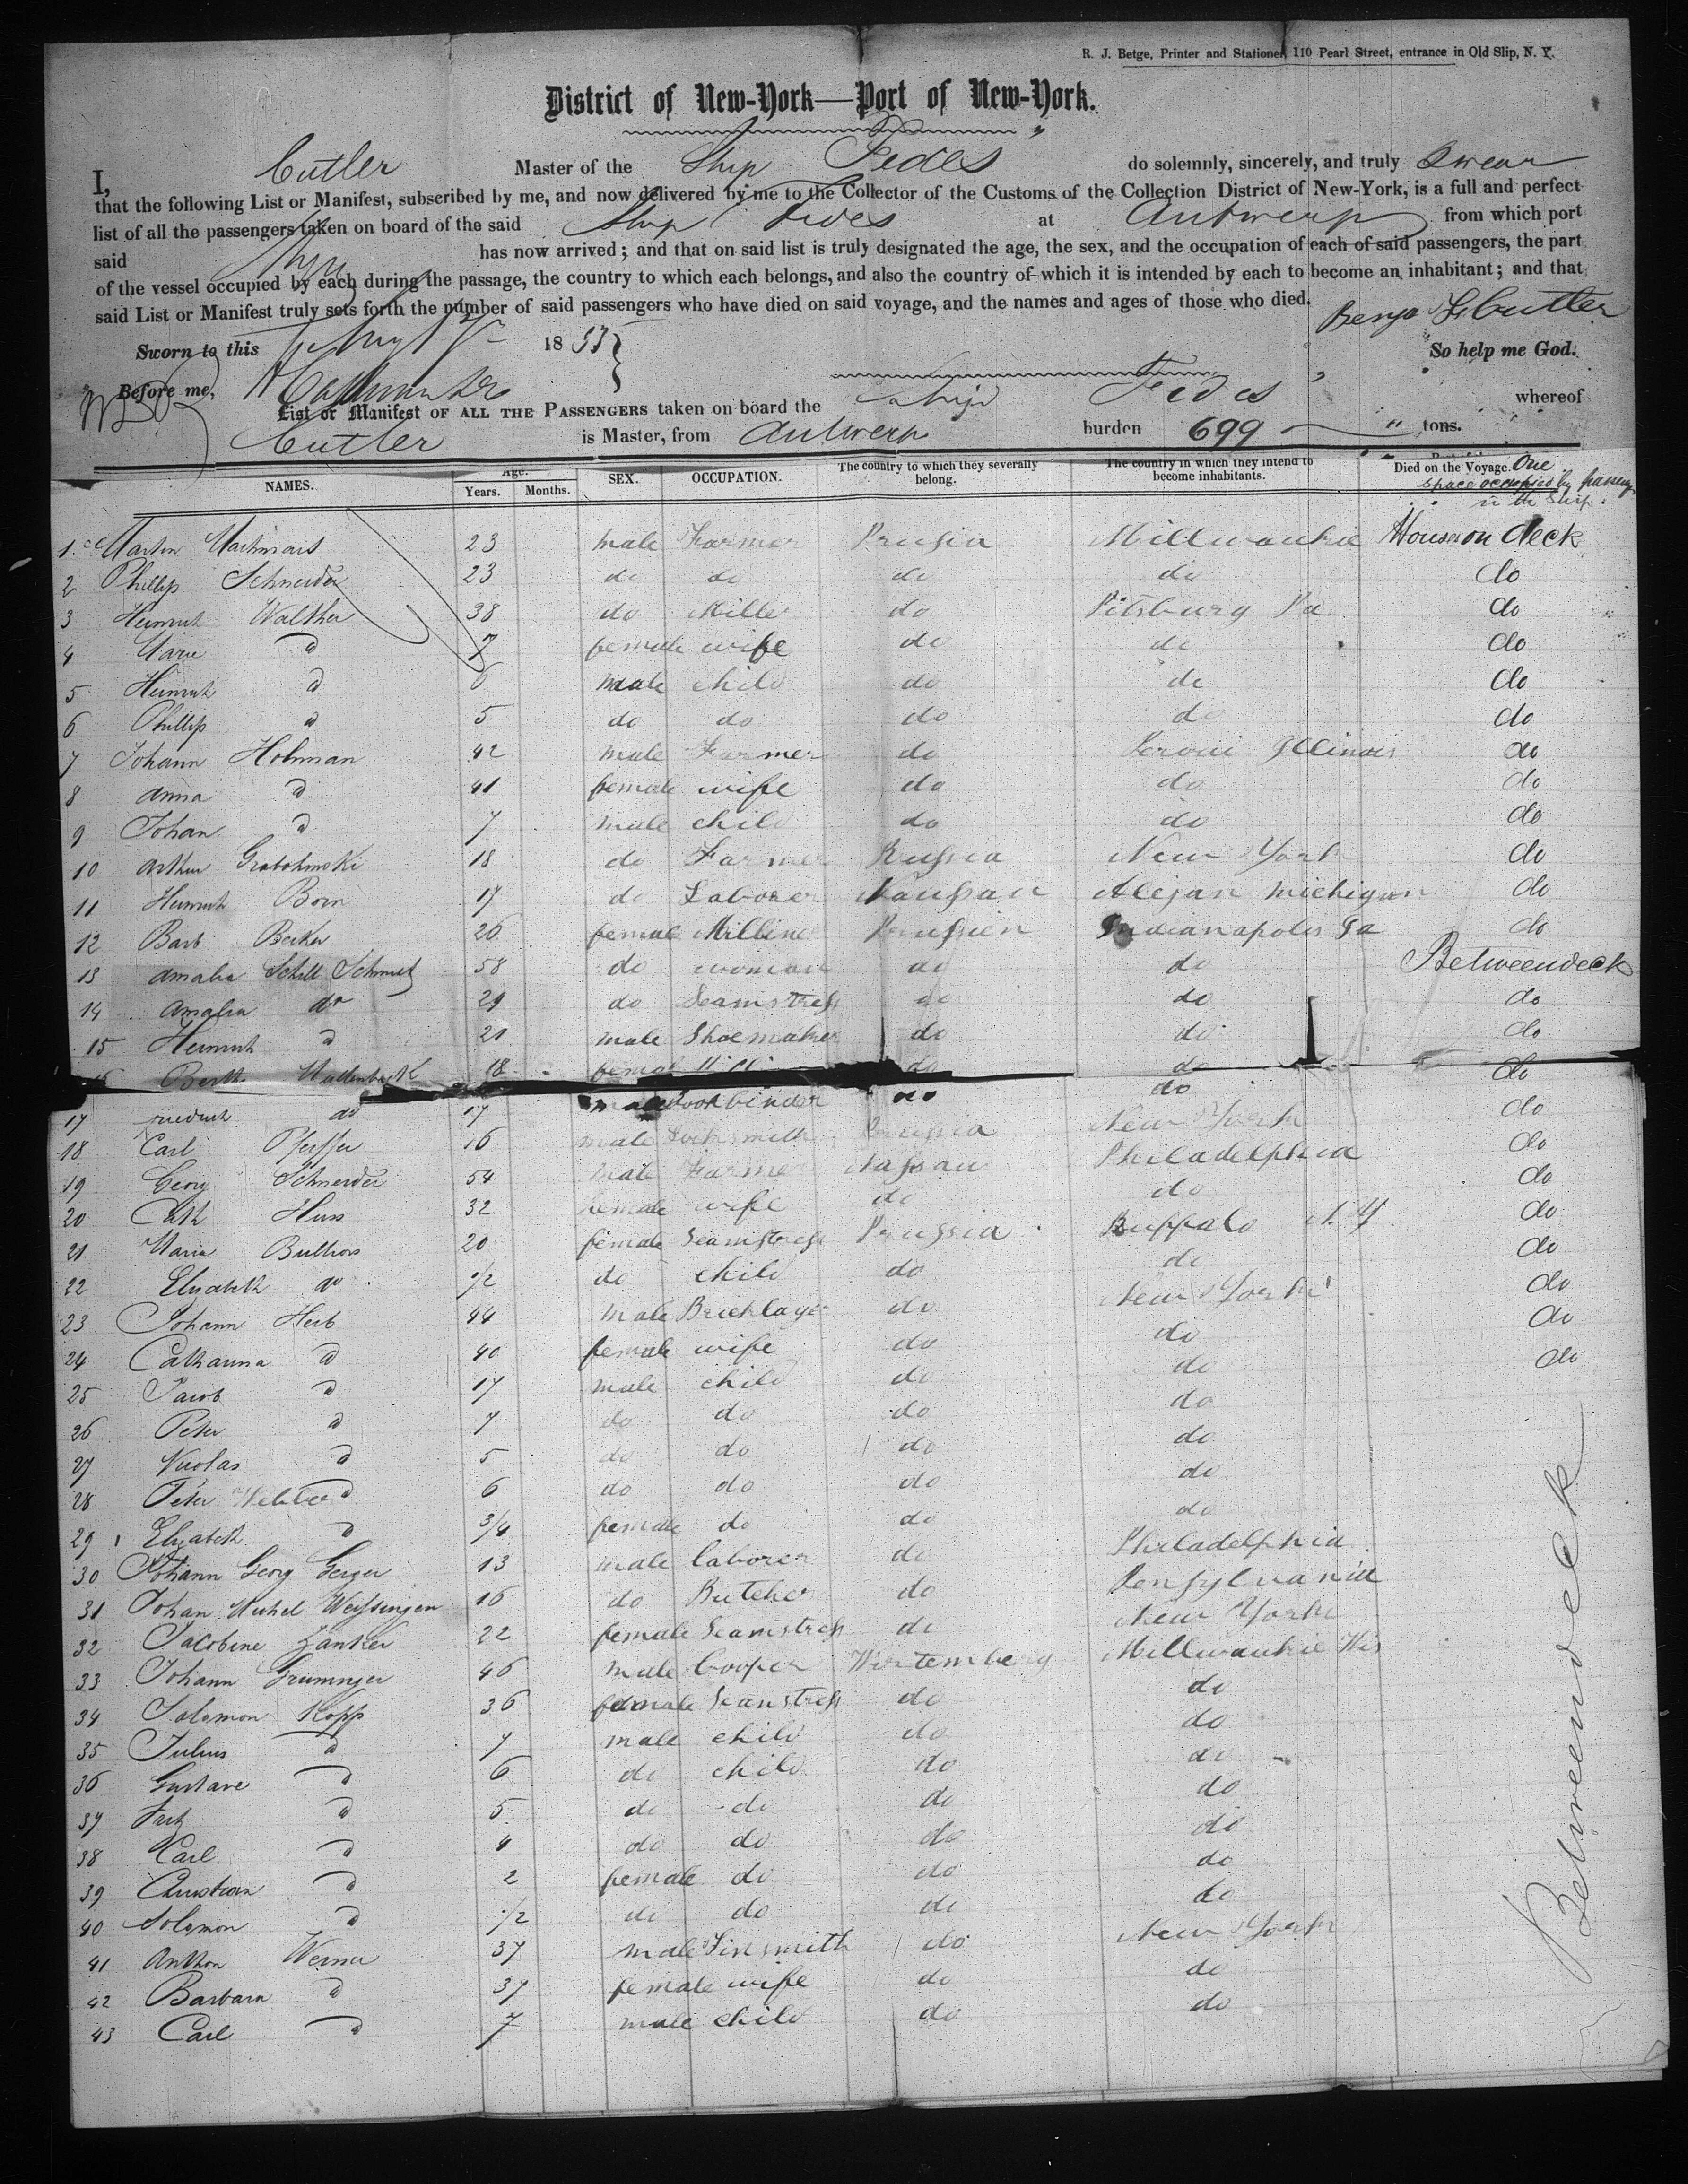 R. J. Betge, Printer and Stationer, 110 Pearl Street, entrance in Old Slip, N. Y.
District of New-York—Port of New-York.
I, Cutler Master of the Ship Fedes do solemnly, sincerely, and truly Swear
that the following List or Manifest, subscribed by me, and now delivered by me to the Collector of the Customs of the Collection District of New-York, is a full and perfect
list of all the passengers taken on board of the said Ship Fedes at Antwerp from which port
said Ship has now arrived; and that on said list is truly designated the age, the sex, and the occupation of each of said passengers, the part
of the vessel occupied by each during the passage, the country to which each belongs, and also the country of which it is intended by each to become an inhabitant; and that
said List or Manifest truly sets forth the number of said passengers who have died on said voyage, and the names and ages of those who died.
Sworn to this 1855 Cutler
So help me God.
Before me,
List or Manifest OF ALL THE PASSENGERS taken on board the Ship Fedes whereof
Cutler is Master, from Antwerp burden 699 tons.
NAMES. Age. Years. Months. SEX. OCCUPATION. The country to which they severally belong. The country in which they intend to become inhabitants. Died on the Voyage. One
space occupied by passeng
in the Ship.
1 Martin 23 male Farmer Prusia Millwaukie House on deck
2 Phillip Schneider 23 do do do do do
3 Heinrich Walther 38 do Miller do Pitsburg Pa do
4 Marie d female wife do do do
5 Heinrich d 6 male child do do do
6 Phillip d 5 do do do do do
7 Johann Hohman 42 male Farmer do Illinois do
8 Anna d 41 female wife do do do
9 Johan d 7 male child do do do
10 Arthur 18 do Farmer Russia New York do
11 Heinrich Born 17 do Laborer Naussau Alejan Michigan do
12 Barb Becker 26 female Milliner Prussien Indianapolis Ia do
13 Amalia Schill Schmitz 58 do woman do do Betweendeck
14 Amalia do 29 do Seamstress do do do
15 Heinrich d 21 male Shoemaker do do do
16 Berth 18 female do do do
17 do 17 male Bookbinder do do do
18 Carl Pfeiffer 16 male Locksmith Prussia New York do
19 Georg Schneider 54 male Farmer Nassau Philadelphia do
20 Cath Huss 32 female wife do do do
21 Maria 20 female Seamstress Prussia Buffalo N. Y. do
22 Elizabeth do 1/2 do child do do do
23 Johann Herb 44 male Bricklayer do New York do
24 Catharina d 40 female wife do do do
25 Jacob d 17 male child do do
26 Peter d 7 do do do do
27 Nicolas d 5 do do do do
28 Peter d 6 do do do do
29 Elizabeth d 3/4 female do do do
30 Johann Georg Geiger 13 male laborer do Philadelphia
31 Johan Michel 16 do Butcher do Pensylvania
32 Jacobine 22 female Seamstress do New York
33 Johann 46 male Cooper Wirtemberg Millwaukie Wis
34 Salomon Kopp 36 female Seamstress do do
35 Julius d 7 male child do do
36 Gustave d 6 do child do do
37 Fritz d 5 do do do do
38 Carl d 4 do do do do
39 Christian d 2 female do do do
40 Solomon d 1/2 do do do do
41 Anthon Werner 37 male Tinsmith do New York
42 Barbara d 37 female wife do do
43 Carl d 7 male child do do
Betweendeck